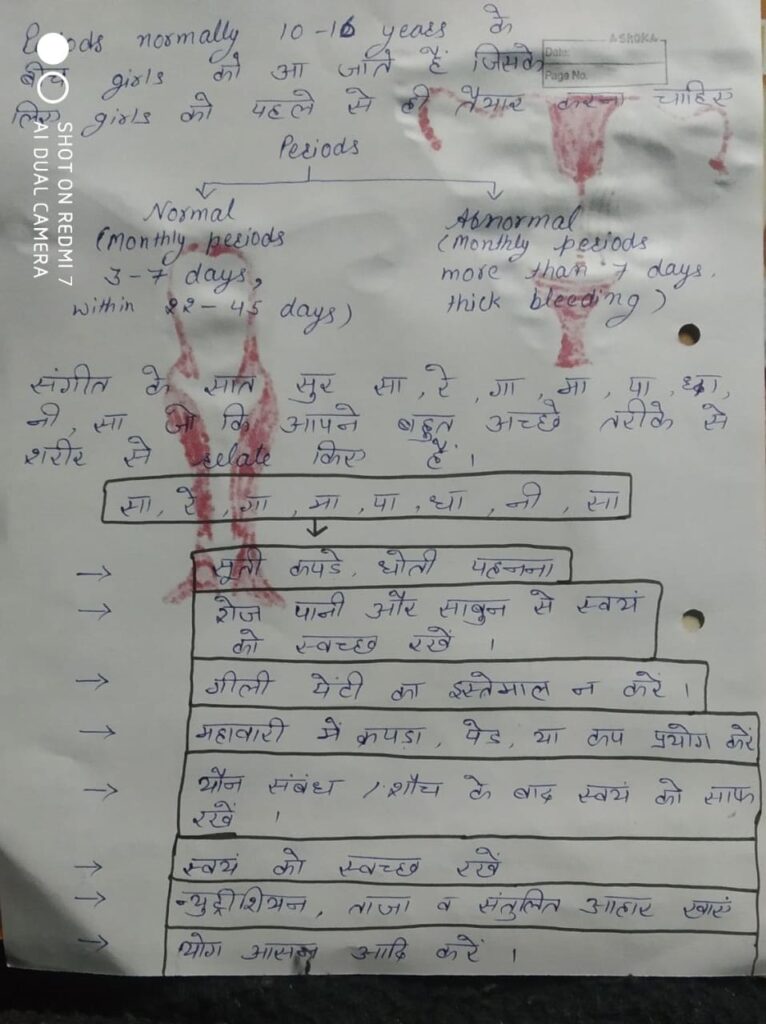 Periods normally 10-16 years के
ASHOKA
Date:
बीच girls को आ जाते हैं जिसके
Page No.
लिए girls को पहले से ही तैयार करना चाहिए
Periods
Normal
(Monthly periods
3-7 days,
within 22-45 days)
Abnormal
(Monthly periods
more than 7 days,
thick bleeding)
संगीत के सात सुर सा, रे, गा, मा, पा, धा,
नी, सा जो कि आपने बहुत अच्छे तरीके से
शरीर से relate किए हैं।
सा, रे, गा, मा, पा, धा, नी, सा
→ सूती कपडे, धोती पहनना
→ रोज पानी और साबुन से स्वयं
को स्वच्छ रखें ।
→ गीली पेंटी का इस्तेमाल न करें ।
→ महावारी में कपड़ा, पेड, या कप प्रयोग करें
→ यौन संबंध / शौच के बाद स्वयं को साफ
रखें ।
→ स्वयं को स्वच्छ रखें
→ न्युट्रीशियन, ताजा व संतुलित आहार खाएं
→ योग आसन आदि करें ।
SHOT ON REDMI 7
AI DUAL CAMERA